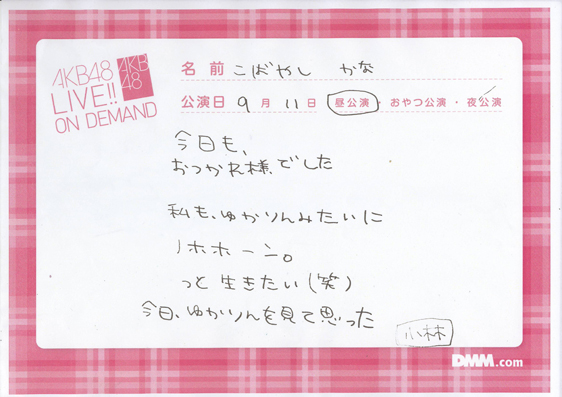 AKB48
LIVE!!
ON DEMAND
AKB
48
名前 こばやし かな
公演日 9月11日 昼公演・おやつ公演・夜公演
今日も、
おつかれ様でした
私も、ゆかりんみたいに
ノホホーン。
っと生きたい(笑)
今日、ゆかりんを見て思った
小林
DMM.com